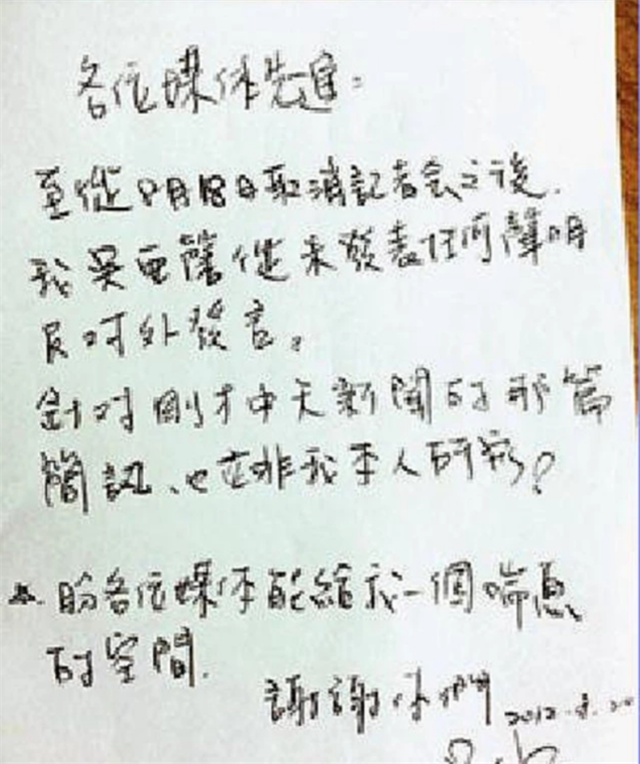 各位媒体先進：
至從8月18日取消記者会之後.
我吳亞馨從未發表任何聲明
及対外發言。
針対剛才中天新聞的那篇
簡訊、也並非我本人所發!
盼各位媒体能給我一個喘息
的空間.
謝謝你們 2012.8.20